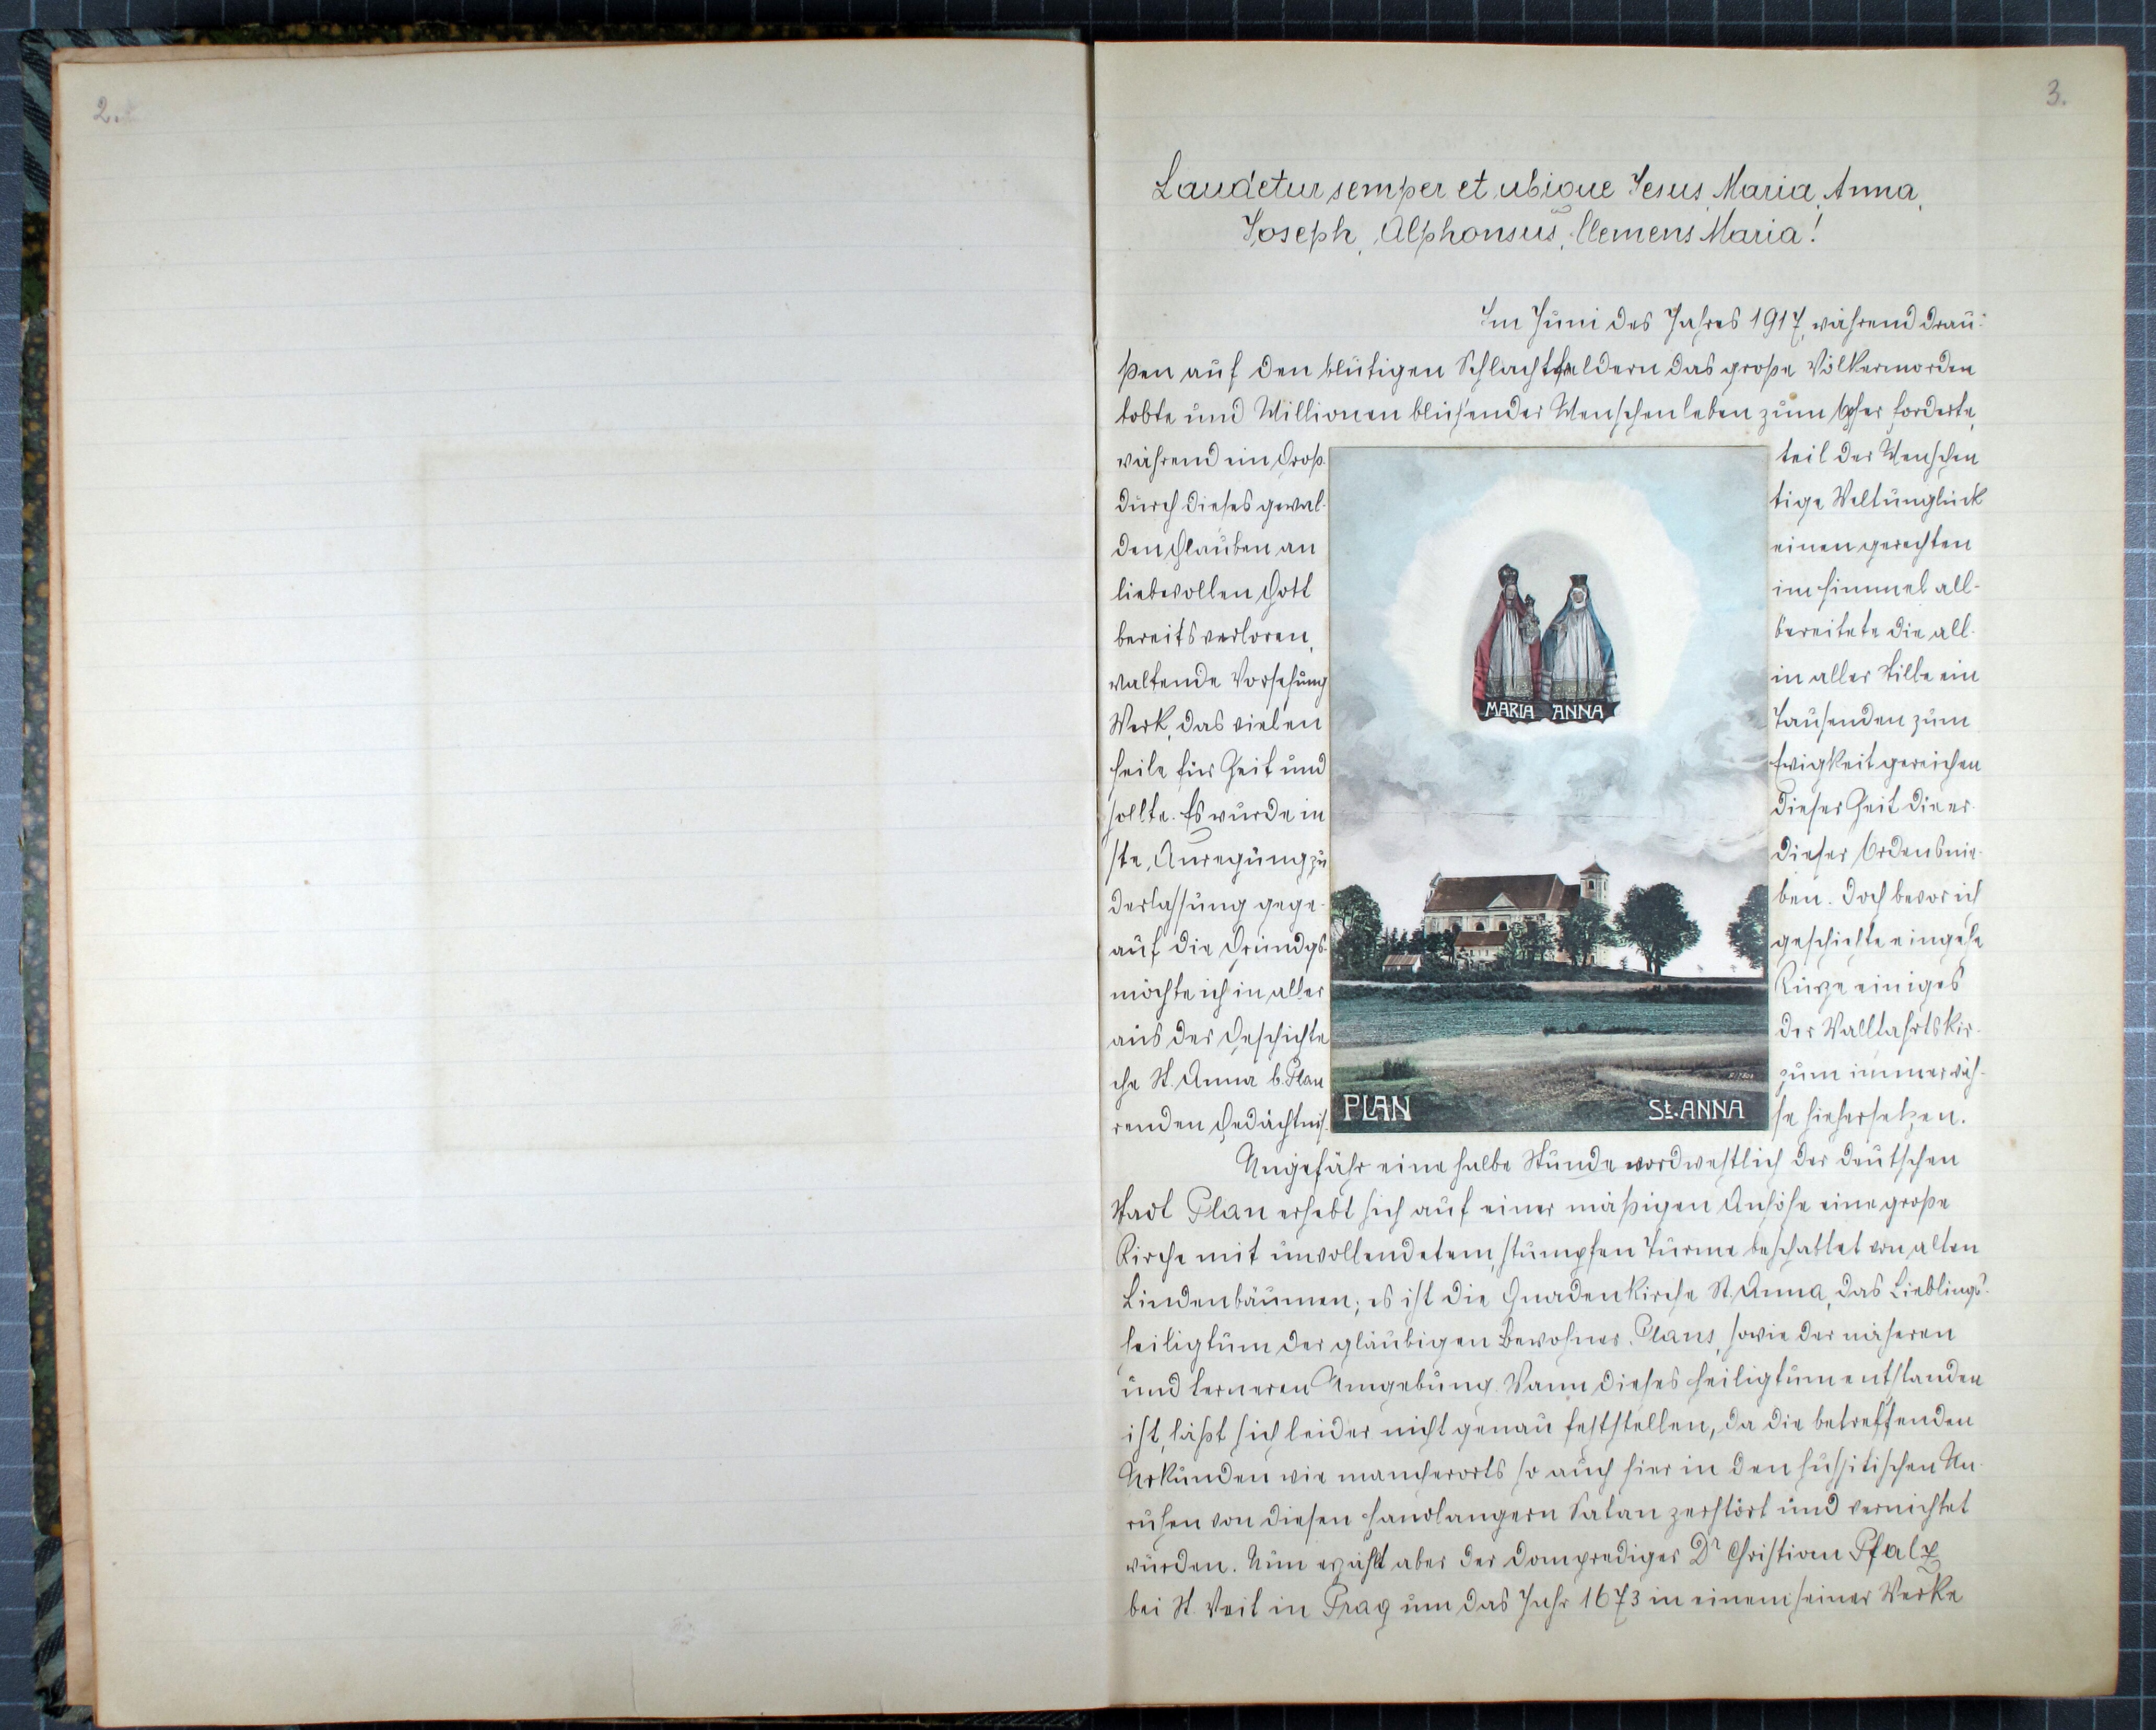 2.
3.
Laudetur semper et ubique Jesus, Maria, Anna,
Joseph, Alphonsus, Clemens Maria!
Im Juni des Jahres 1917, während drau-
ßen auf den blutigen Schlachtfeldern das große Völkermorden
tobte und Millionen blühender Menschenleben zum Opfer forderte,
während ein Groß- teil der Menschen
durch dieses gewal- tige Weltunglück
den Glauben an einen gerechten
liebevollen Gott im Himmel all-
bereits verloren, bereitete die all-
waltende Vorsehung in aller Stille ein
Werk, das vielen Tausenden zum
Heile für Zeit und Ewigkeit gereichen
sollte. Es wurde in dieser Zeit die er-
ste Anregung zu dieser Ordensnie-
derlassung gege- ben. Doch bevor ich
auf die Gründgs- geschichte eingehe
möchte ich in aller Kürze einiges
aus der Geschichte der Wallfahrtskir-
che St. Anna b. Plan zum immerwäh-
renden Gedächtnis- se hiehersetzen.
MARIA ANNA
PLAN St. ANNA
Ungefähr eine halbe Stunde nordwestlich der deutschen
Stadt Plan erhebt sich auf einer mäßigen Anhöhe eine große
Kirche mit unvollendetem, stumpfen Turme beschattet von alten
Lindenbäumen; es ist die Gnadenkirche St. Anna, das Lieblings-
heiligtum der gläubigen Bewohner Plans, sowie der näheren
und ferneren Umgebung. Wann dieses Heiligtum entstanden
ist, läßt sich leider nicht genau feststellen, da die betreffenden
Urkunden wie mancherorts so auch hier in den hussitischen Un-
ruhen von diesen Handlangern Satan zerstört und vernichtet
wurden. Nun erzählt aber der Domprediger Dr Christian Pfalz
bei St. Veit in Prag um das Jahr 1673 in einem seiner Werke